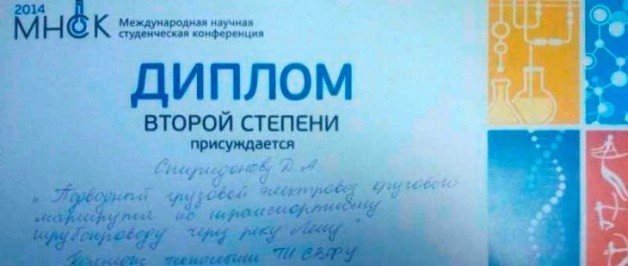 2014
МНСК
Международная научная
студенческая конференция
ДИПЛОМ
ВТОРОЙ СТЕПЕНИ
присуждается
Спиридонову Д.А.
"Подводный грузовой электровоз кругового
маршрута по транспортному
трубопроводу через реку Лену"
Колледж технологии ТИ СВФУ